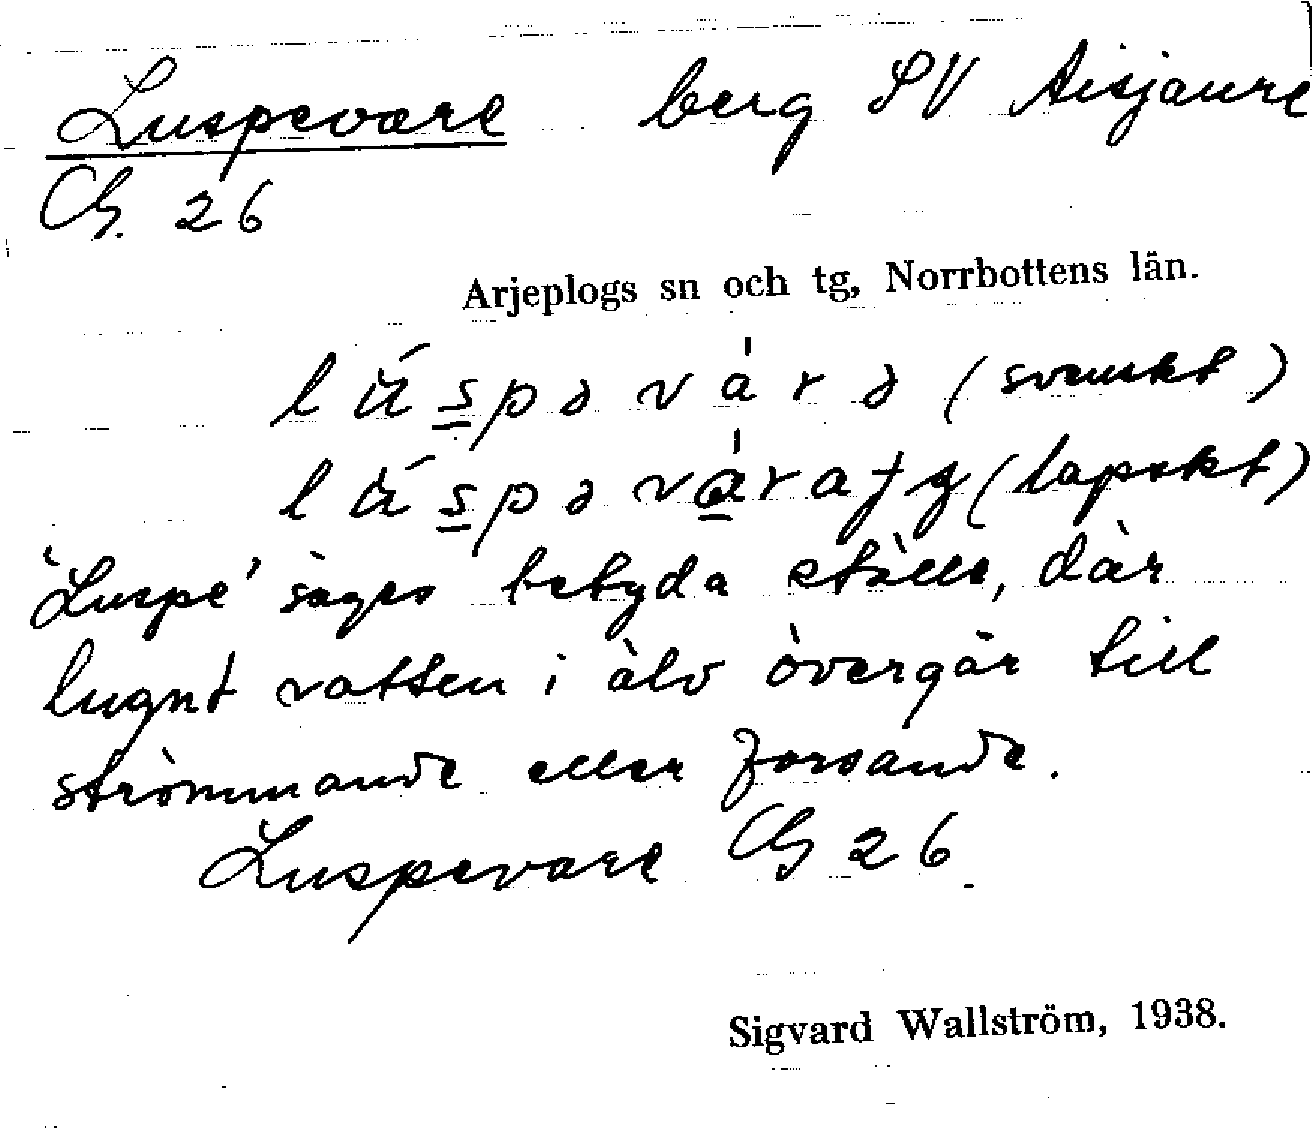 Luspevare berg SV Aisjaure
G. 26
Arjeplogs sn och tg, Norrbottens län.
(svenskt)
(lapskt)
'Luspe' säges betyda ställe, där
lugnt vatten i älv övergår till
strömmande eller forsande.
Luspevare G 26
Sigvard Wallström, 1938.